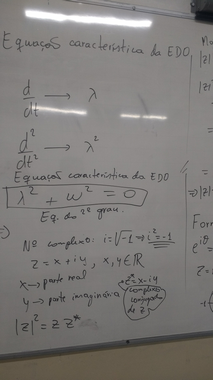 Equação característica da EDO
d/dt → λ
d²/dt² → λ²
Equação característica da EDO
λ² + ω² = 0
Eq. do 2º grau.
Nº complexo: i = √-1 ⇒ i² = -1
z = x + iy, x, y ∈ ℝ
x → parte real
y → parte imaginária
z* = x - iy
complexo
conjugado
de z
|z|² = z z*
Ma
|z|
|zi
=
⇒ |z|
For
e^iθ
z =